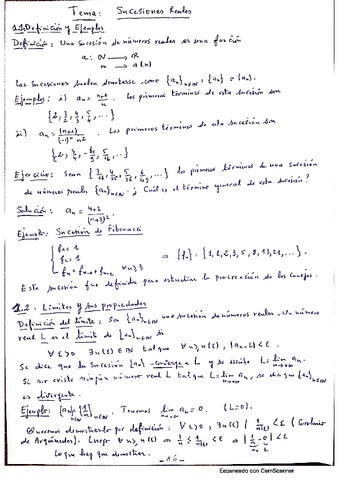 Tema: Sucesiones Reales
1.1 Definición y Ejemplos
Definición: Una sucesión de números reales es una función
a: ℕ → ℝ
n → a(n)
Las sucesiones suelen denotarse como {aₙ}ₙ∈ℕ, {aₙ} o (aₙ).
Ejemplos: i) aₙ = (n+1)/n. Los primeros términos de esta sucesión son
{2, 3/2, 4/3, 5/4, ...}
ii) Los primeros términos de esta sucesión son
Ejercicio: Sean los primeros términos de una sucesión
de números reales {aₙ}ₙ∈ℕ. ¿Cuál es el término general de esta sucesión?
Solución: aₙ = (n+2)/(n+3)².
Ejemplo: Sucesión de Fibonacci
f₁ = 1
f₂ = 1 ⇒ {fₙ} = {1, 1, 2, 3, 5, 8, 13, 21, ...}.
∀ n ≥ 3
Esta sucesión fue definida para estudiar la procreación de los conejos.
1.2. Límites y sus propiedades
Definición del límite: Sea {aₙ}ₙ∈ℕ una sucesión de números reales. Un número
real L es el límite de {aₙ}ₙ∈ℕ si
∀ ε > 0 ∃ n(ε) ∈ ℕ tal que ∀ n ≥ n(ε), |aₙ - L| < ε
Se dice que la sucesión {aₙ} converge a L y se escribe L = lim aₙ.
Si no existe ningún número real L tal que L = lim aₙ, se dice que {aₙ}ₙ∈ℕ
es divergente.
Ejemplo: Tenemos lim aₙ = 0. (L=0).
Queremos demostrarlo por definición: ∀ ε > 0, ∃ n(ε) | 1/n(ε) < ε
de Arquímedes). Luego ∀ n ≥ n(ε) ⇒ 1/n ≤ 1/n(ε) < ε ⇒ |1/n - 0| < ε
Lo que hay que demostrar.
- 16 -
Escaneado con CamScanner